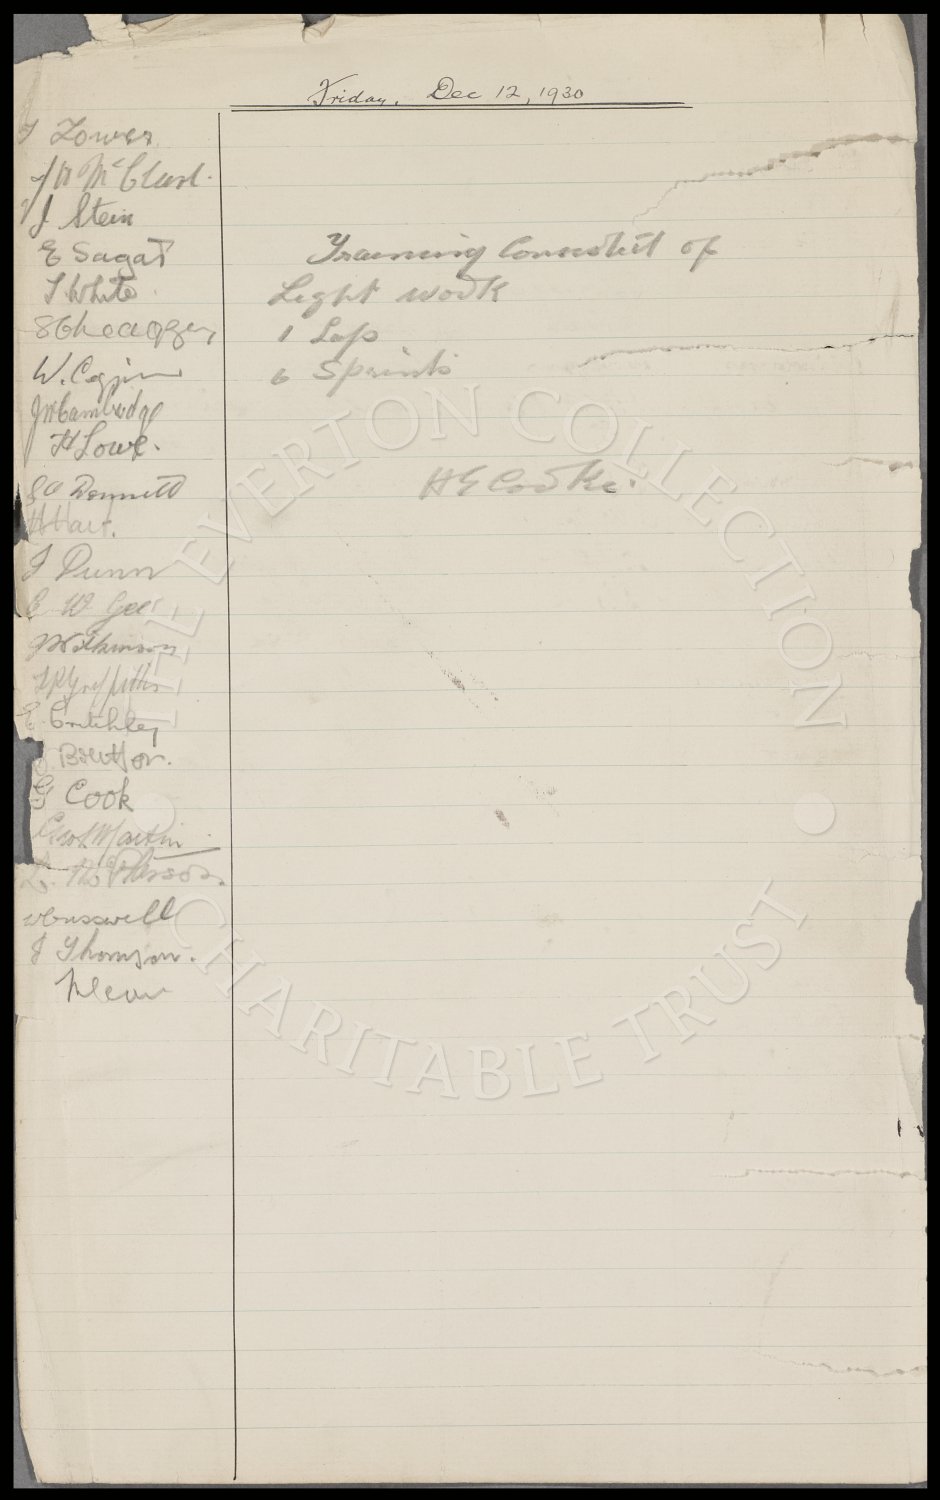 Friday, Dec 12, 1930
T Lowes
J Stein
E Sagar
T White
W. Coggins
JW Cambridge
H Lowe.
H Hart.
J Dunn
C W Gee
J Wilkinson
T P Griffiths
E. Critchley
J. Britton.
G Cook
Geo S Martin
L. McPherson.
W Cresswell
J Thomson.
Dean
Training Consistit of
Light work
1 Lap
6 Sprints
H E Cooke.
THE EVERTON COLLECTION
• CHARITABLE TRUST •